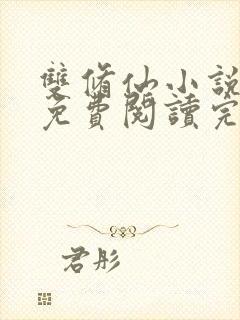 雙脩仙小說
免費閱讀完
君彤